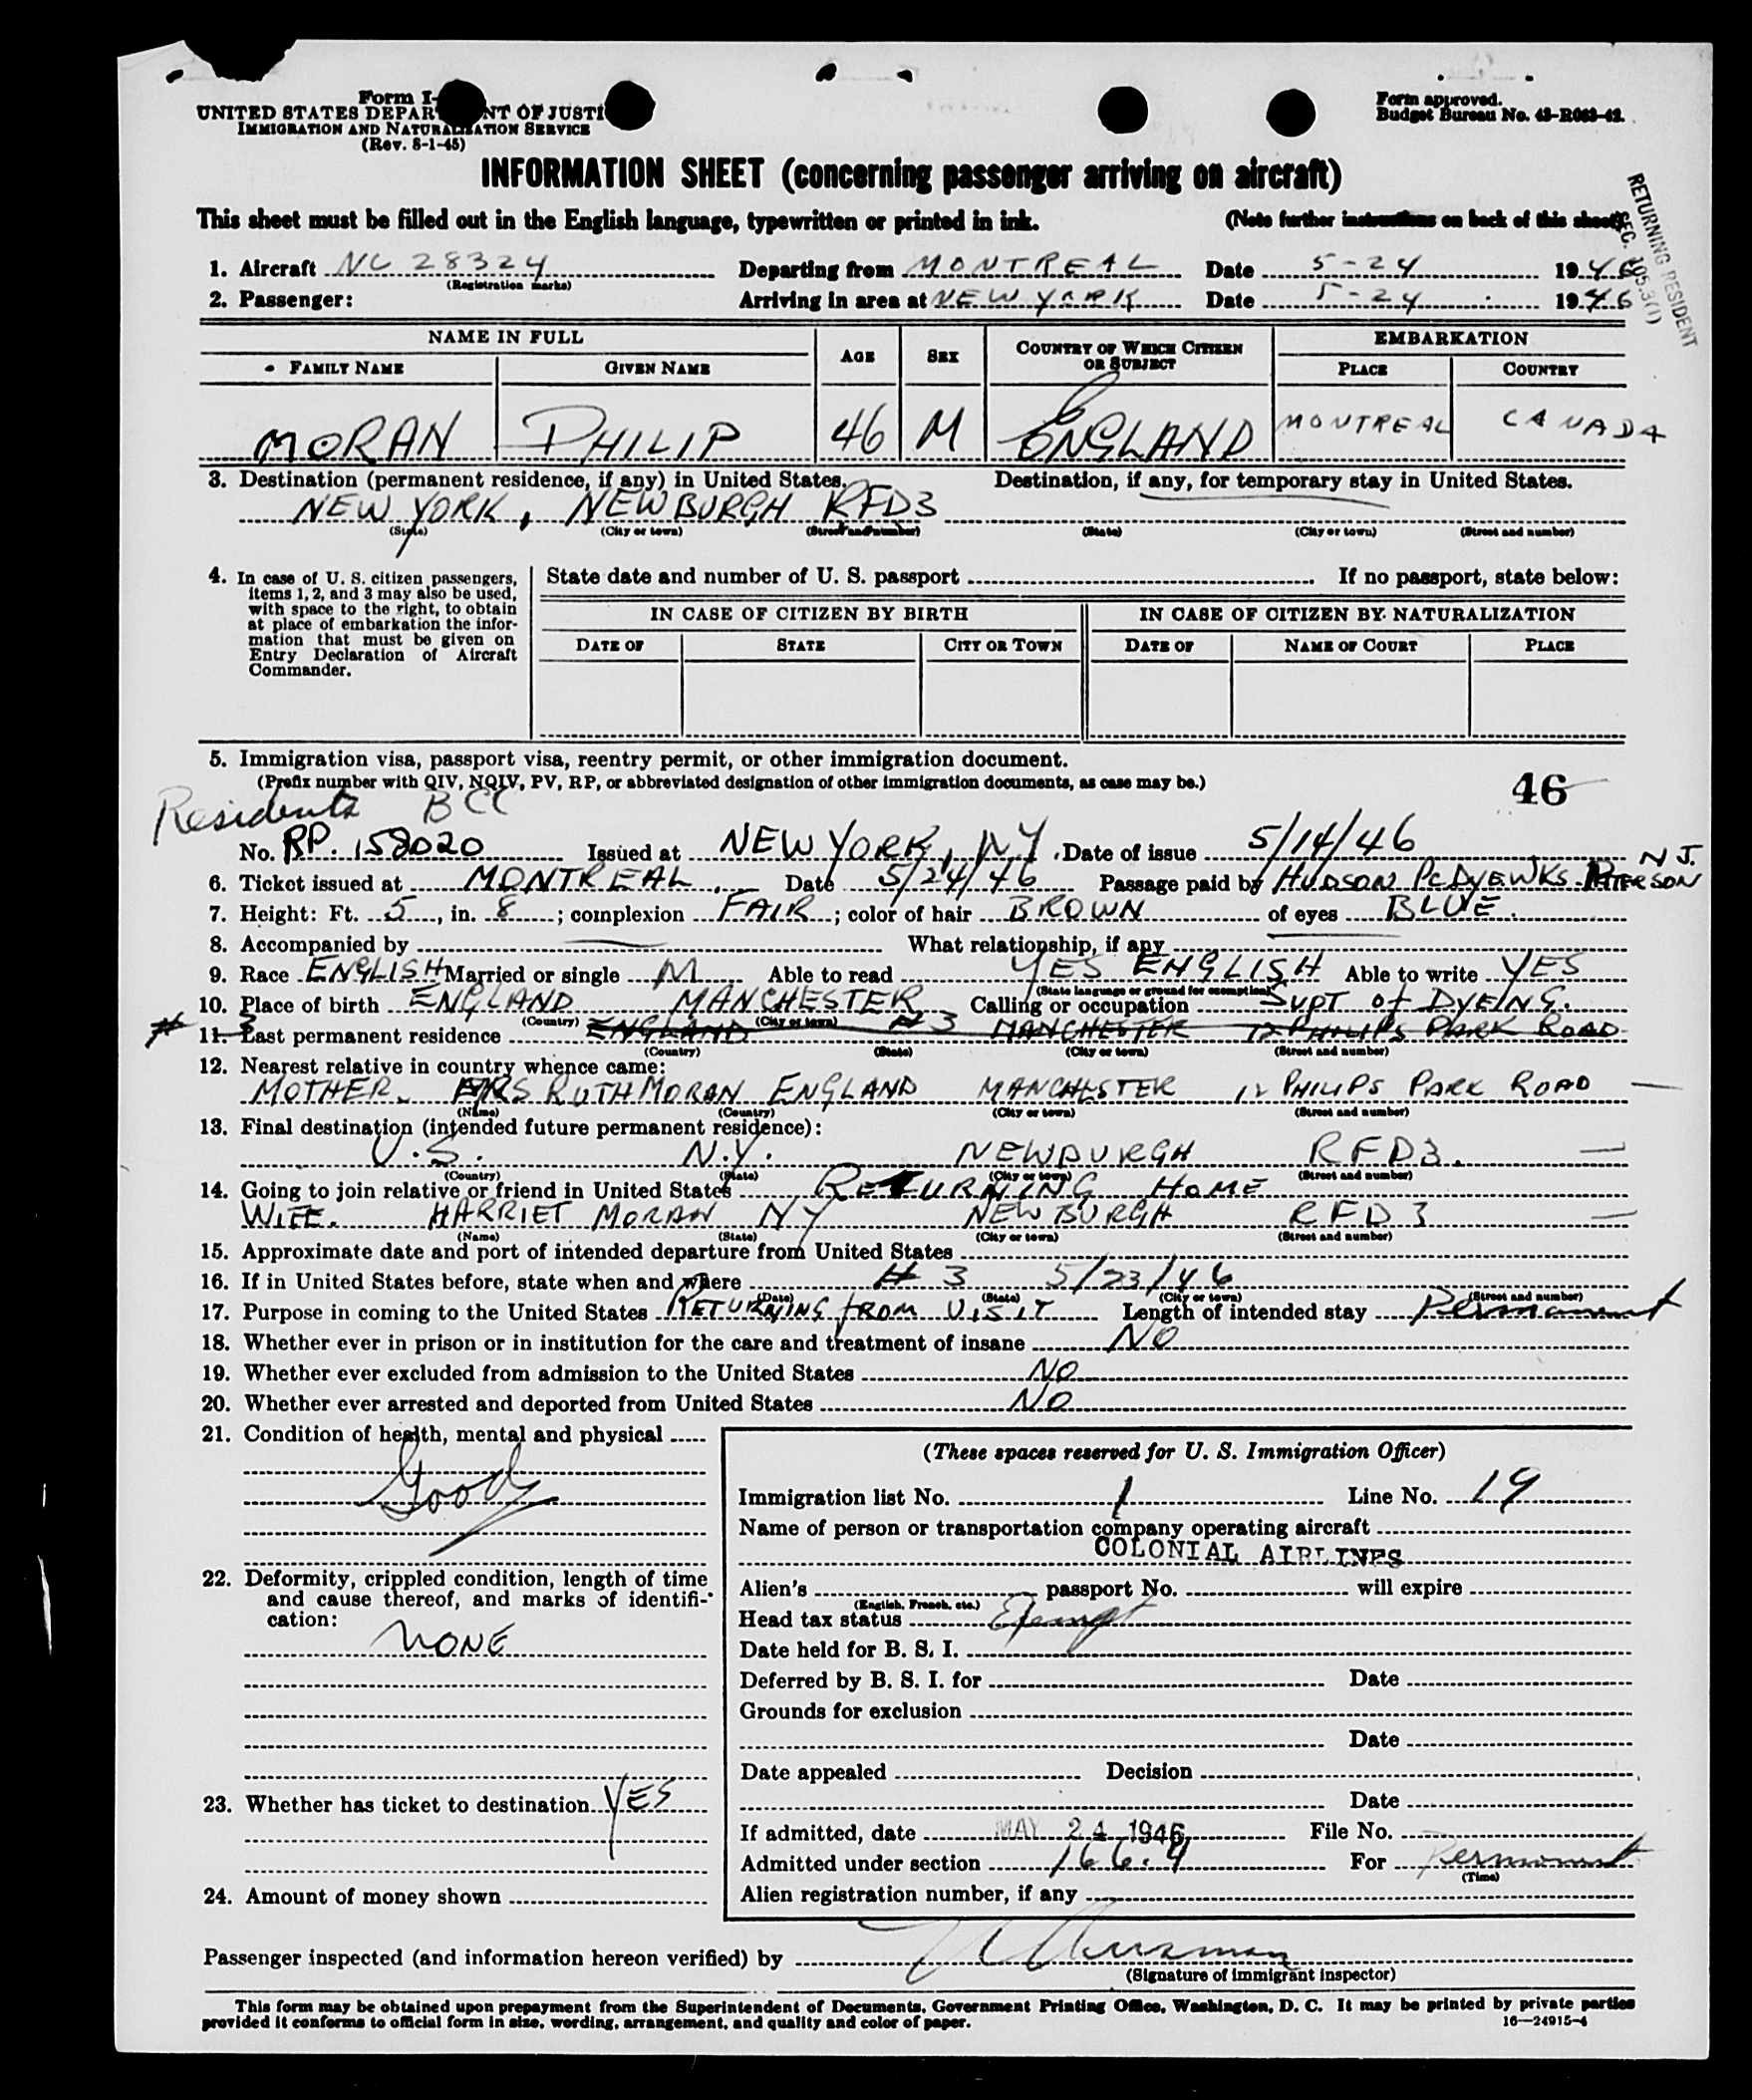 Form I-
UNITED STATES DEPAR NT OF JUSTI
IMMIGRATION AND NATURALIZATION SERVICE
(Rev. 8-1-45)
Form approved.
Budget Bureau No. 43-R063-42.
INFORMATION SHEET (concerning passenger arriving on aircraft)
This sheet must be filled out in the English language, typewritten or printed in ink. (Note further instructions on back of this sheet)
RETURNING RESIDENT
SEC. 105.3(1)
1. Aircraft NC 28324 Departing from MONTREAL Date 5-24 1946
(Registration marks)
2. Passenger: Arriving in area at NEW YORK Date 5-24 1946
NAME IN FULL AGE SEX COUNTRY OF WHICH CITIZEN OR SUBJECT EMBARKATION
FAMILY NAME GIVEN NAME PLACE COUNTRY
MORAN PHILIP 46 M ENGLAND MONTREAL CANADA
3. Destination (permanent residence, if any) in United States. Destination, if any, for temporary stay in United States.
NEW YORK, NEWBURGH RFD3
(State) (City or town) (Street and number) (State) (City or town) (Street and number)
4. In case of U. S. citizen passengers,
items 1, 2, and 3 may also be used,
with space to the right, to obtain
at place of embarkation the infor-
mation that must be given on
Entry Declaration of Aircraft
Commander.
State date and number of U. S. passport If no passport, state below:
IN CASE OF CITIZEN BY BIRTH IN CASE OF CITIZEN BY NATURALIZATION
DATE OF STATE CITY OR TOWN DATE OF NAME OF COURT PLACE
5. Immigration visa, passport visa, reentry permit, or other immigration document.
(Prefix number with QIV, NQIV, PV, RP, or abbreviated designation of other immigration documents, as case may be.)
46
Residents BCC
No. RP. 158020 Issued at NEW YORK, NY. Date of issue 5/14/46
6. Ticket issued at MONTREAL Date 5/24/46 Passage paid by HUDSON PC DYEWKS PATERSON NJ.
7. Height: Ft. 5, in. 8; complexion FAIR; color of hair BROWN of eyes BLUE.
8. Accompanied by What relationship, if any
9. Race ENGLISH Married or single M Able to read YES ENGLISH Able to write YES
(State language or ground for exemption)
10. Place of birth ENGLAND MANCHESTER Calling or occupation SUPT OF DYEING.
(Country) (City or town)
# 3
11. Last permanent residence ENGLAND #3 MANCHESTER 12 PHILIPS PARK ROAD
(Country) (State) (City or town) (Street and number)
12. Nearest relative in country whence came:
MOTHER. MRS RUTH MORAN ENGLAND MANCHESTER 12 PHILIPS PARK ROAD
(Name) (Country) (City or town) (Street and number)
13. Final destination (intended future permanent residence):
U.S. N.Y. NEWBURGH RFD3.
(Country) (State) (City or town) (Street and number)
14. Going to join relative or friend in United States RETURNING HOME
WIFE. HARRIET MORAN NY NEWBURGH RFD 3
(Name) (State) (City or town) (Street and number)
15. Approximate date and port of intended departure from United States
16. If in United States before, state when and where # 3 5/23/46
(Date) (State) (City or town) (Street and number)
17. Purpose in coming to the United States RETURNING FROM VISIT Length of intended stay Permanent
18. Whether ever in prison or in institution for the care and treatment of insane NO
19. Whether ever excluded from admission to the United States NO
20. Whether ever arrested and deported from United States NO
21. Condition of health, mental and physical
Good
22. Deformity, crippled condition, length of time
and cause thereof, and marks of identifi-
cation:
NONE
23. Whether has ticket to destination YES
24. Amount of money shown
(These spaces reserved for U. S. Immigration Officer)
Immigration list No. 1 Line No. 19
Name of person or transportation company operating aircraft
COLONIAL AIRLINES
Alien's passport No. will expire
(English, French, etc.)
Head tax status Exempt
Date held for B. S. I.
Deferred by B. S. I. for Date
Grounds for exclusion
Date
Date appealed Decision
Date
If admitted, date MAY 24 1946 File No.
Admitted under section 166.4 For Permanent
(Time)
Alien registration number, if any
Passenger inspected (and information hereon verified) by
(Signature of immigrant inspector)
This form may be obtained upon prepayment from the Superintendent of Documents, Government Printing Office, Washington, D. C. It may be printed by private parties
provided it conforms to official form in size, wording, arrangement, and quality and color of paper. 16—24915-4